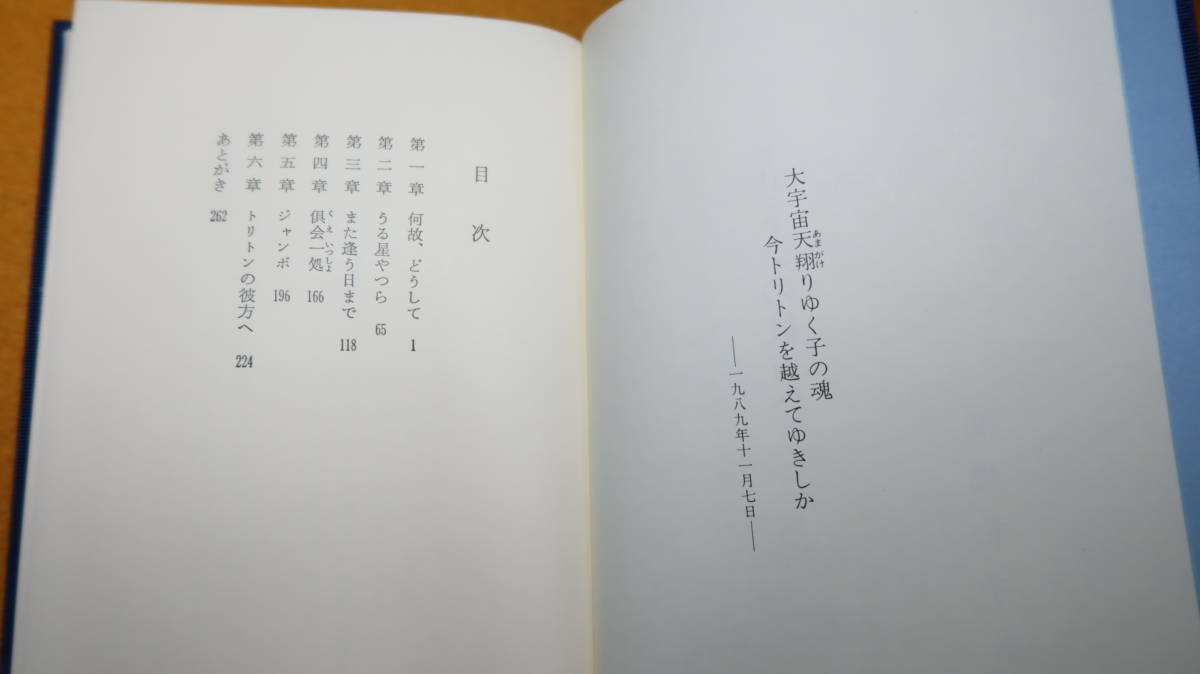 大宇宙天翔りゆく子の魂
あま がけ
今トリトンを越えてゆきしか
——一九八九年十一月七日——
目次
第一章 何故、どうして 1
第二章 うる星やつら 65
第三章 また逢う日まで 118
第四章 倶会一処 166
くえ いっしょ
第五章 ジャンボ 196
第六章 トリトンの彼方へ 224
あとがき 262